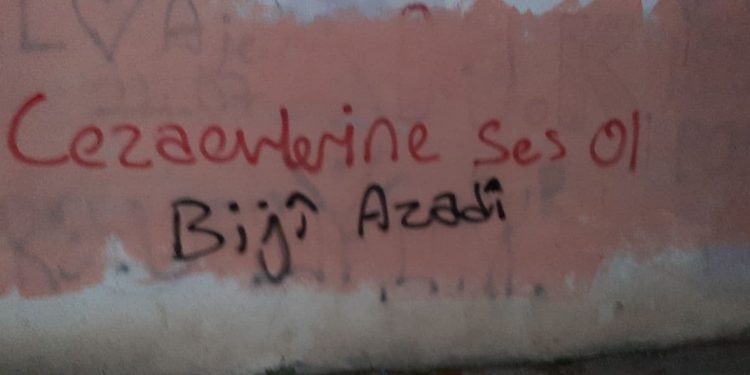 L ♡ A
Cezaevlerine Ses Ol
Bijî Azadî